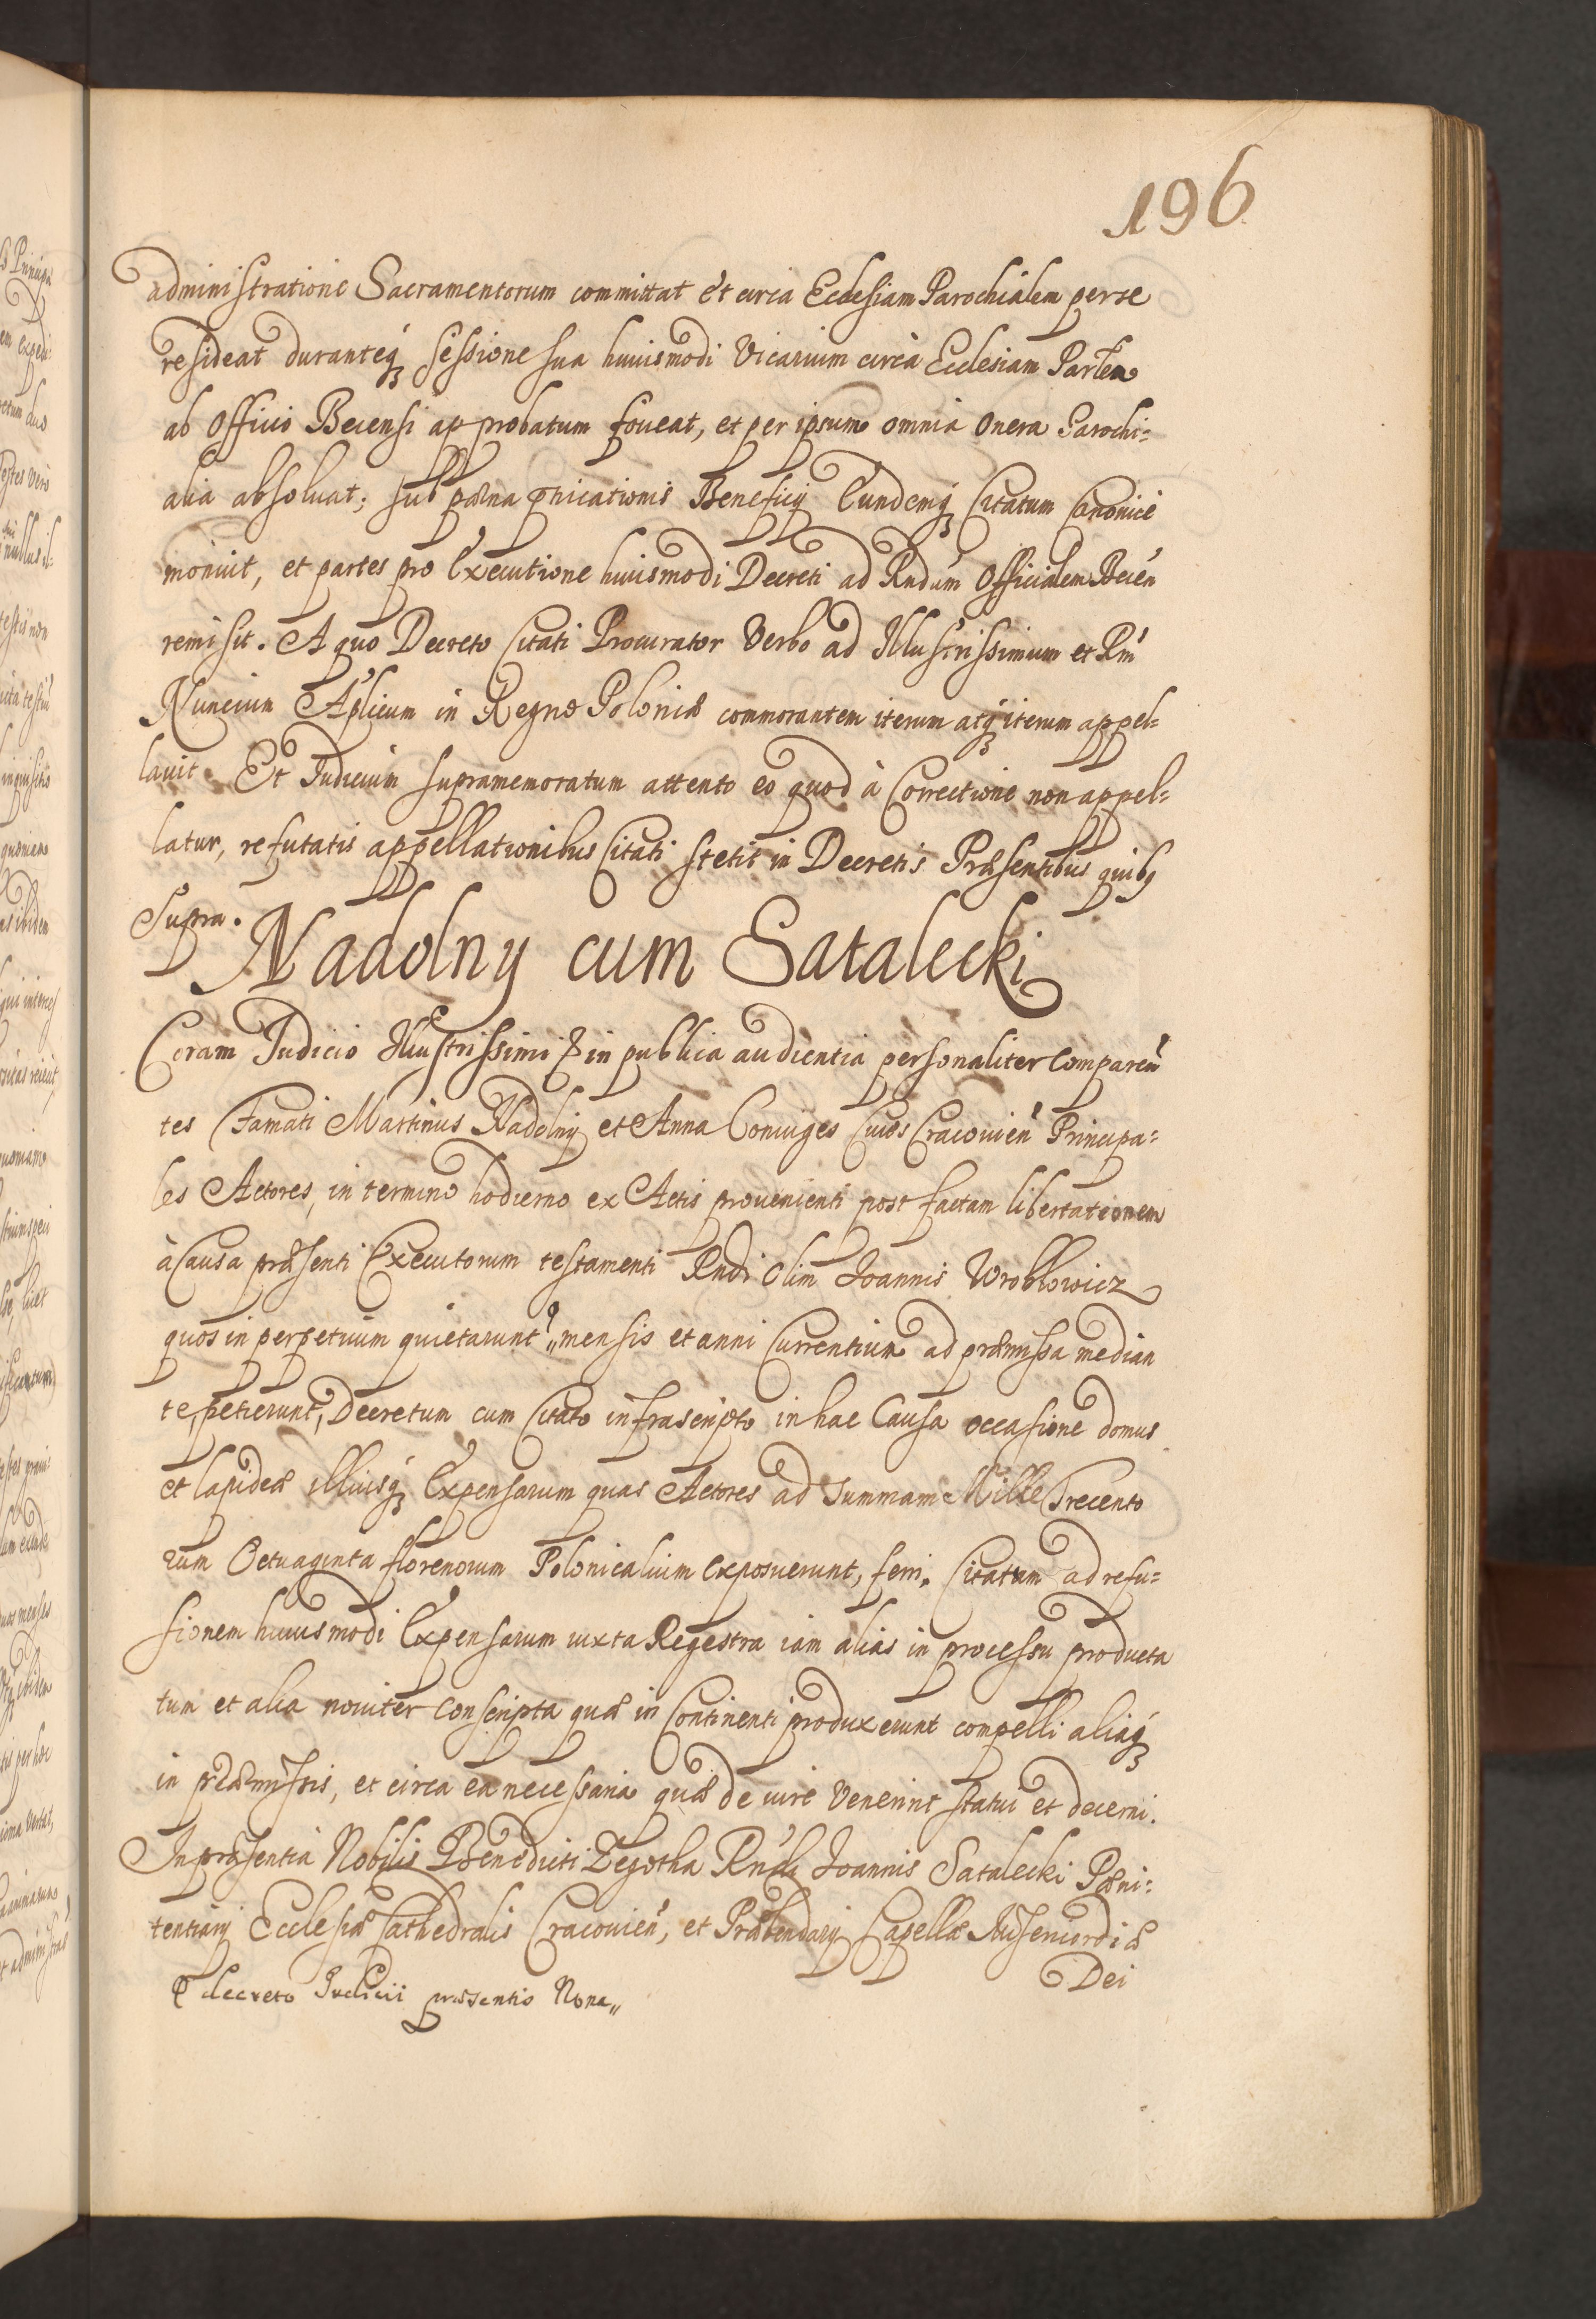 196
administratione Sacramentorum committat et circa Ecclesiam Parochialem per se
resideat duranteq́ sessione sua huiusmodi Vicarium circa Ecclesiam Parlem
ab Officio Becensi approbatum foveat, et per ipsum omnia onera Parochi=
alia absoluat; sub pæna Priuationis Beneficij Eundemq́ Citatum Canonicè
moniuit, et partes pro Executione huiusmodi Decreti ad Rndum Officialem Becen̄
remisit. A quo Decreto Citati Procurator Verbo ad Illustrissimum et Rm̄
Nuncium Aplicum in Regno Poloniæ commorantem iterum atq́ iterum appel=
lauit. Et Iudicium supramemoratum attento eo quod à Correctione non appel=
latur, refutatis appellationibus Citati stetit in Decretis Præsentibus quibq
Supra.
Nadolny cum Satalecki
Coram Iudicio Illustrissimi & in publica audientia personaliter Comparen̄
tes Famati Martinus Nadolny et Anna Coniuges Ciues Cracouien̄ Principa=
les Actores, in termino hodierno ex Actis proueniendi post factam libertationem
à Causa præsenti Executorum testamenti Rndi olim Ioannis Wroblowicz
quos in perpetuum quietarunt „ mensis et anni Currentium ad præmissa median
te, petierunt, Decretum cum Citato infrascripto in hac Causa occasione domus
et lapideæ illiusq́ Expensarum quas Actores ad summam Mille Trecento
rum Octuaginta florenorum Polonicalium exposuerunt, ferri. Citatum ad refu=
sionem huiusmodi Expensarum iuxta Regestra iam alias in processu producta
tum et alia nouiter conscripta quæ in Continenti produxerunt compelli aliaq́
in præmissis, et circa ea necessaria quæ de iure Venerint statui et decerni.
In præsentia Nobilis Benedicti Zegotha Rndi Ioannis Satalecki Pæni=
tentiarij Ecclesiæ Cathedralis Cracouien̄, et Præbendarij Capellæ Misericordiæ
Dei
decreto Iudicii præsentis Nona„